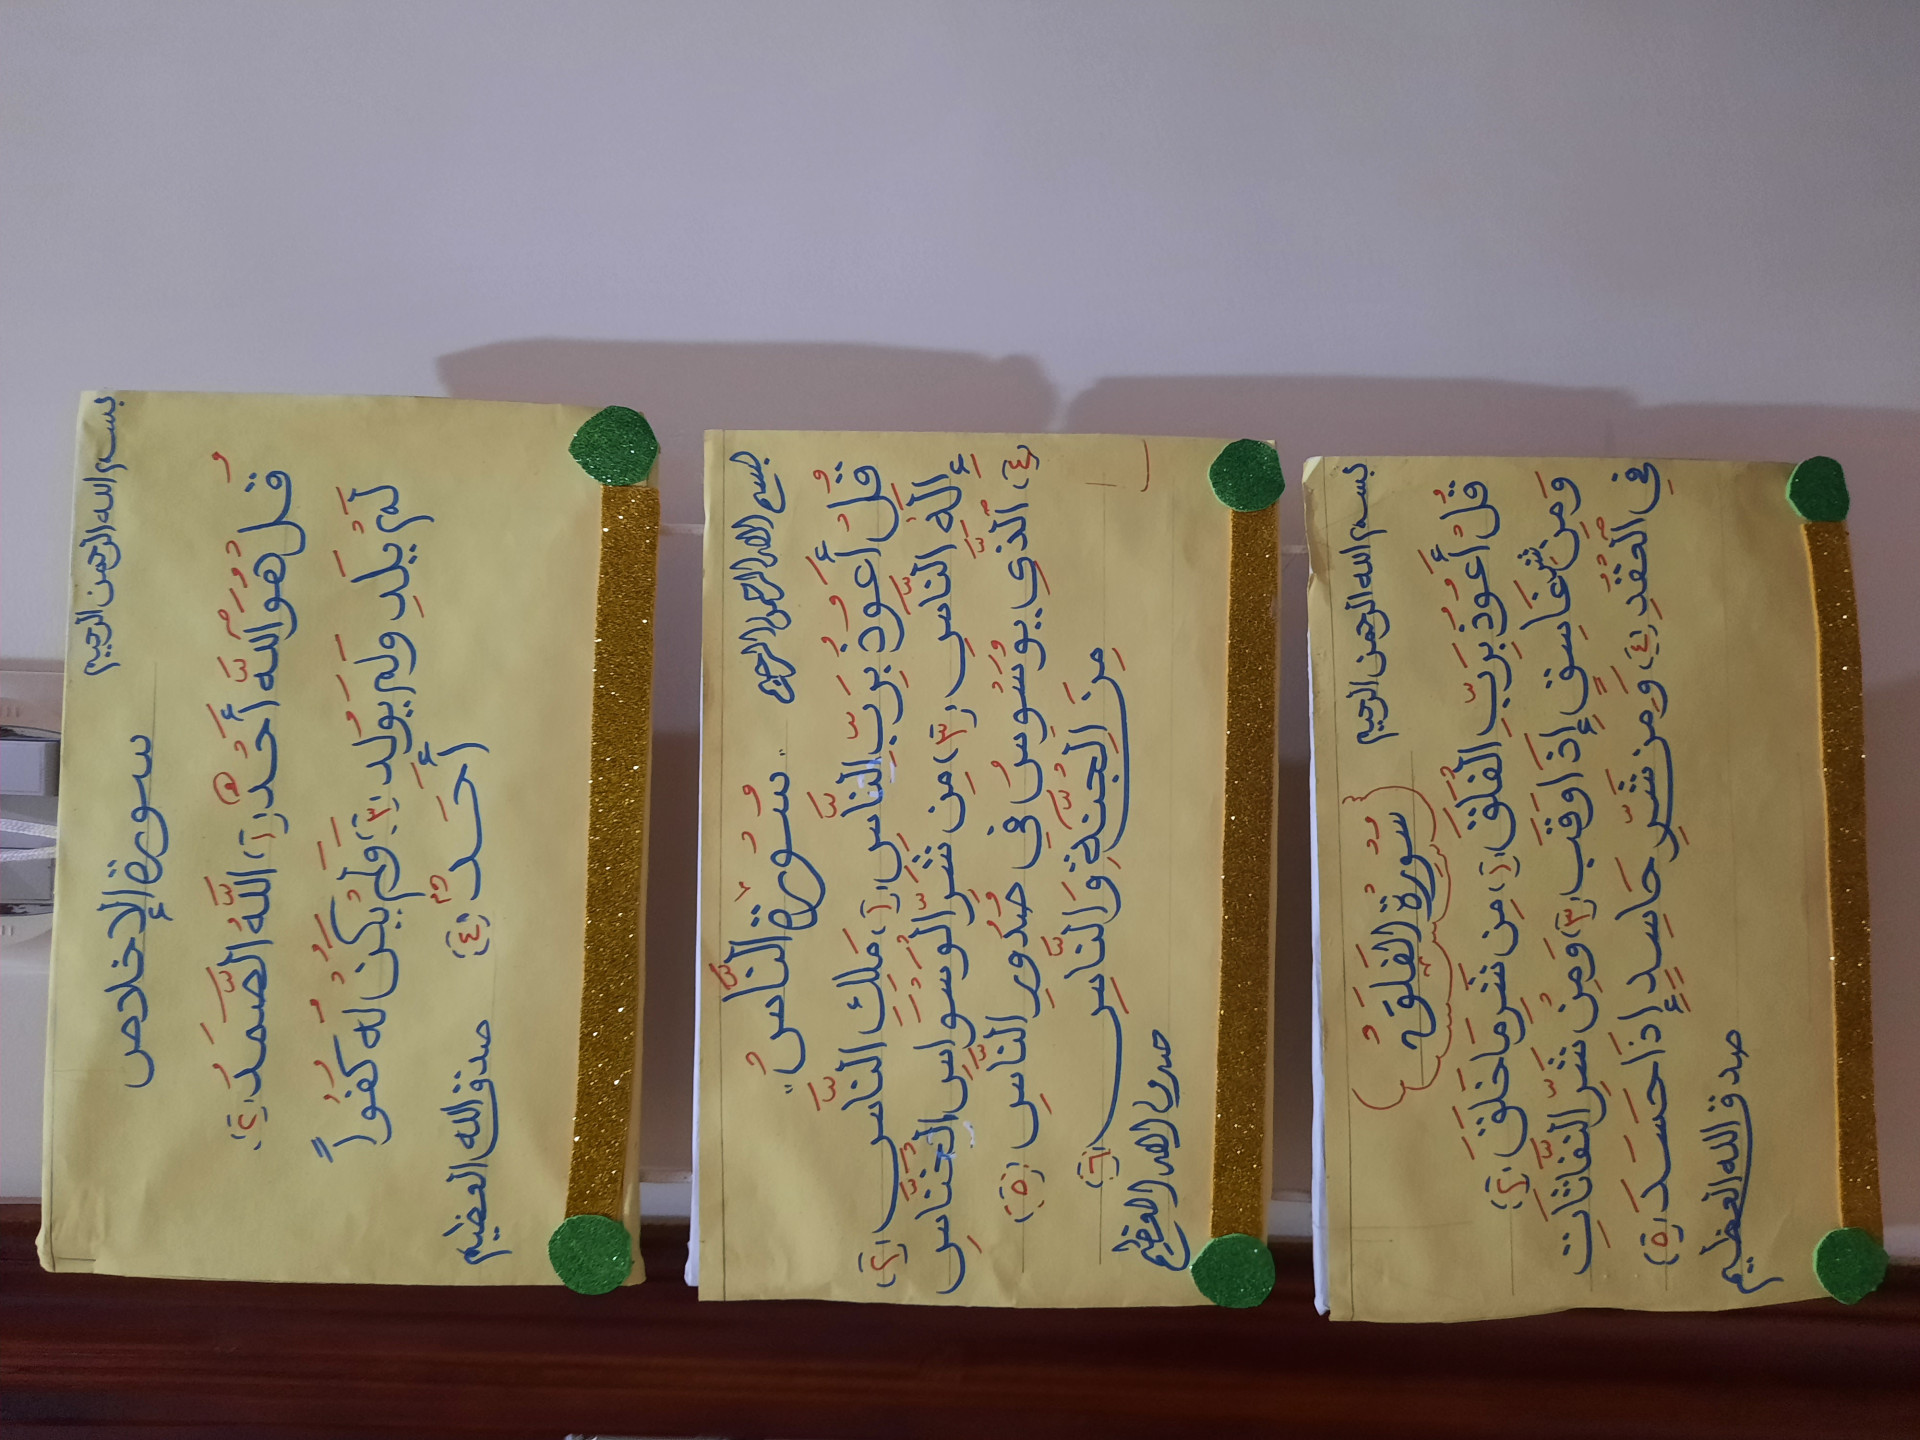 بسم الله الرحمن الرحيم
سورة الإخلاص
قُل هُوَ اللَّهُ أَحَدٌ (١) اللَّهُ الصَّمَدُ (٢)
لَمْ يَلِدْ وَلَمْ يُولَدْ (٣) فلَمْ يَكُنْ لَهُ كُفُواً
أَحَدٌ (٤)
صدق الله العظيم
بسم الله الرحمن الرحيم
"سُورة النَّاسُ"
قُلْ أَعُوذُ بِرَبِّ النَّاسِ (١) مَلِكِ النَّاسِ (٢)
إِلَهِ النَّاسِ (٣) مِن شَرِّ الْوَسْوَاسِ الْخَنَّاسِ
(٤) الَّذِي يُوَسْوِسُ فِي صُدُورِ النَّاسِ (٥)
مِنَ الْجِنَّةِ وَالنَّاسِ (٦)
صدق الله العظيم
بسم الله الرحمن الرحيم
سُورْة الفَلَقْ
قُلْ أَعُوذُ بِرَبِّ الْفَلَقِ (١) مِن شَرِّ مَا خَلَقَ (٢)
وَمِن شَرِّ غَاسِقٍ إِذَا وَقَبَ (٣) وَمِنْ شَرِّ النَّفَّاثَاتِ
فِي الْعُقَدِ (٤) وَمِن شَرِّ حَاسِدٍ إِذَا حَسَدَ (٥)
صدق الله العظيم